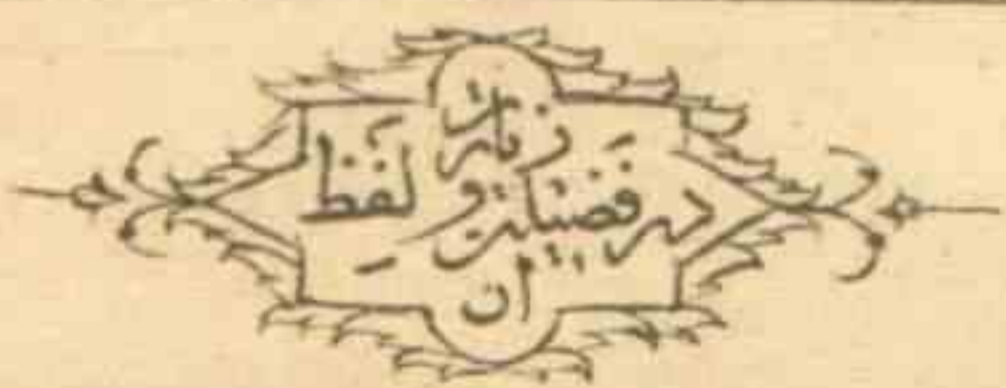 در فضیلت زیارت و لفظ
ان